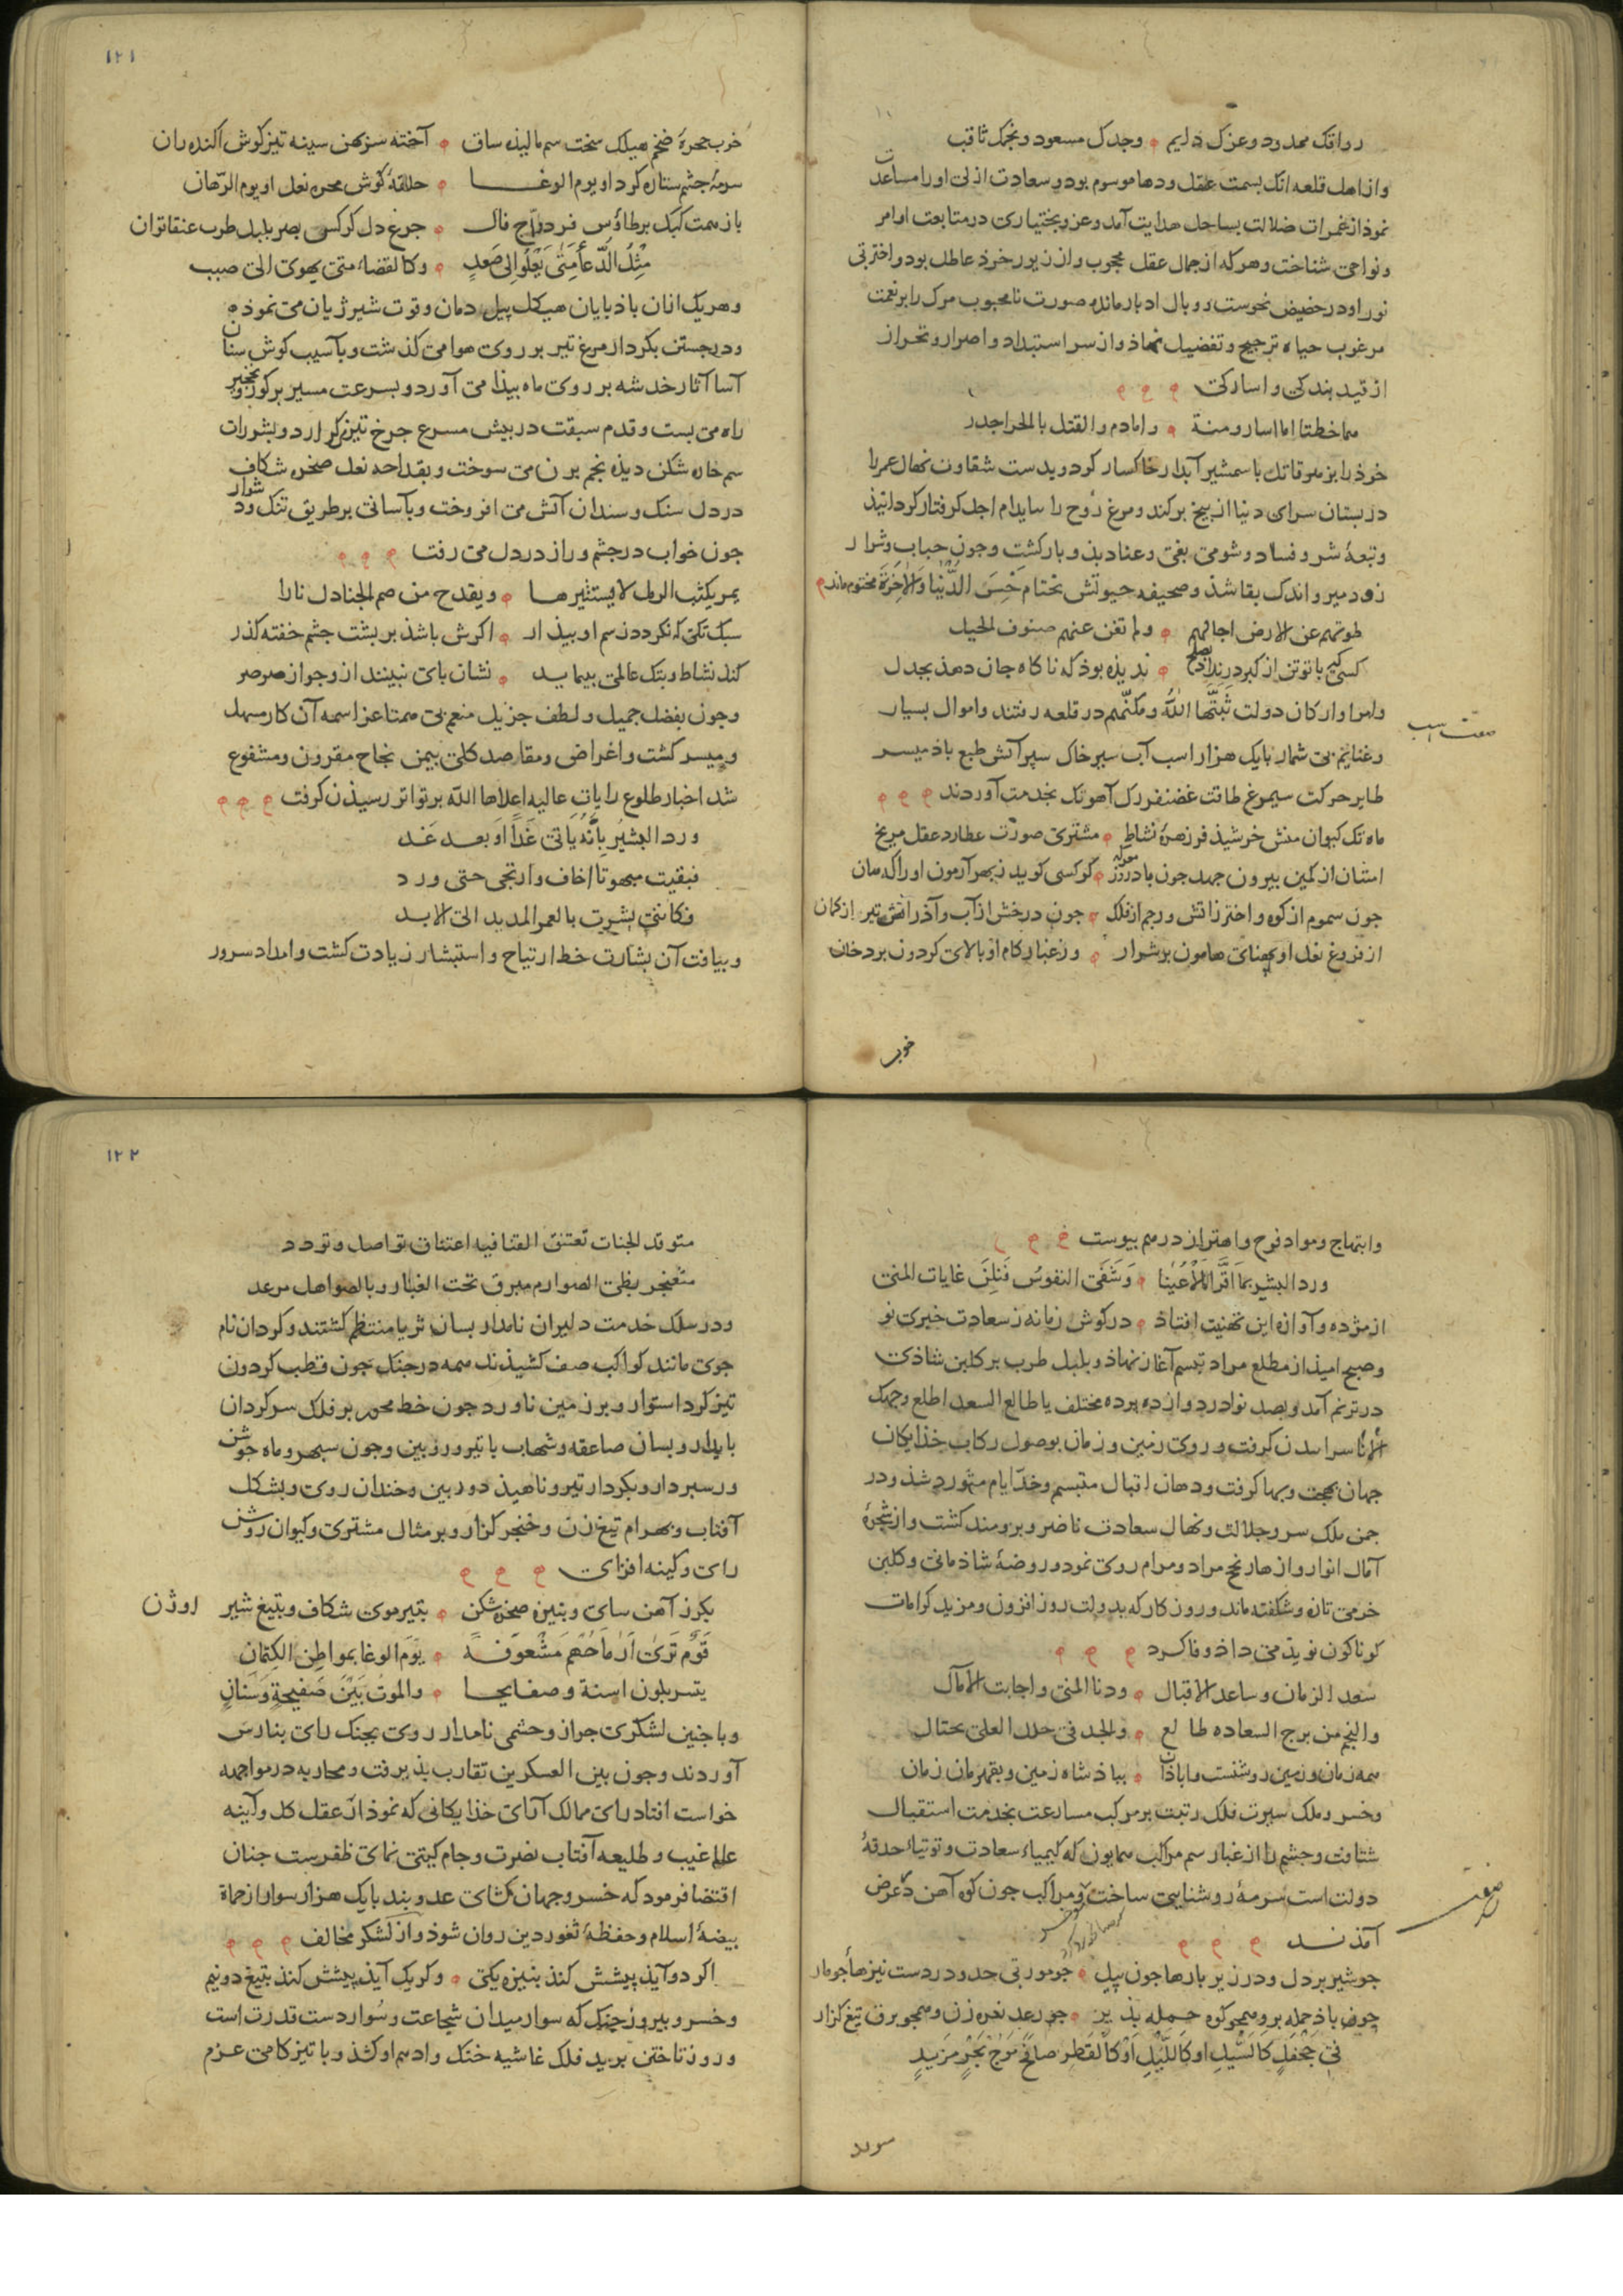 رواقک ممدود وعزک دایم ۞ وجدک مسعود ونجمک ثاقب
واز اهل قلعه انک بسمت عقل ودها موسوم بود وسعادت ازلی اورا مساعدت
نموذ از غمرات ضلالت بساحل هدایت آمد وعز وبختیاری در متابعت اوامر
ونواحی شناخت وهر که از جمال عقل محجوب واز زیور خرد عاطل بود واختر بی
نور او در حضیض نحوست ووبال ادبار مانده صورت نامحبوب مرک را بر نعمت
مرغوب حیاه ترجیح وتفضیل نهاذ واز سر استبداد واصرار وتحراز
از قید بندکی واسارکی
هما خطتا اما اسار ومنة ۞ واما دم والقتل بالحر اجدر
خوذ را بزهر قاتل باسمشیر آبدار خاکسار کرد وبدست شقاوت نهال عمر را
در بستان سرای دنیا از بیخ برکند ومرغ روح را سا بدام اجل کرفتار کردانیذ
وتبعهٔ شر وفساد وشومی بغی وعناد بذو بازکشت وجون حباب وشرار
زود میر واندک بقا شذ وصحیفه حیوتش بختام خَسِرَ الدُّنْیا وَالآخِرَةَ مختوم ماند
طوتهم عن الارض اجالهم ۞ ولم تغن عنهم صنوف الحیل
کسی کی با تو تن از کبر در نداد بصلح ۞ ندیذه بوذ که ناکاه جان دهذ بجدل
وامرا وارکان دولت ثَبَّتَها اللهُ ومکنّهم در قلعه رفتند واموال بسیار
وغنایم بی شمار با یک هزار اسب آب سیر خاک سپر آتش طبع باذ میسر
صفت اسب
طایر حرکت سیمرغ طاقت غضنفر دل آهوتک بخدمت آوردند
ماه تک کیوان منش خرشیذ فر زهره نشاط ۞ مشتری صورت عطارد عقل مریخ
امتنان از کمین بیرون جهد جون باد روز معرکه ۞ کر کسی کوید ز بهر آزمون اورا که هان
جون سموم از کوه واختر زاتش ورجم از فلک ۞ جون درخش از آب وآذر آتش تیر از کمان
از فروغ نعل او پهنای هامون پر شرار ۞ وز غبار کام او بالای کردون پر دخان
خوب
۱۲۱
خوب جهرهٔ ضخم هیکل سخت سم مالیذه ساق ۞ آخته سر پهن سینه تیز کوش اکنده ران
سرمهٔ جشم ستاره کرد او یوم الوغــا ۞ حلقهٔ کوش مجره نعل او یوم الرّهان
باز همت کبک بر طاؤس فر درّاج فال ۞ جرغ دل کرکس بصر بلبل طرب عنقا توان
مِثلُ الدُّعَاءِ مَتَی یَعْلُو الِی صَعَدٍ ۞ وکالقضاء متی یهوی الی صبب
وهر یک ازان باذ بایان هیکل پیل دمان وقوت شیر ژیان می نموذه
ودر جستن بکردار مرغ تیر بر روی هوا می کذشت وبآسیب کوش سنان
آسا آثار خدشه بر روی ماه بیذا می آورد وبسرعت مسیر بر کوزن ونخجیر
راه می بست وقدم سبقت در بیش مسرع جرخ تیزکرد ارد وبشررات
سم خاره شکن دیذه نجم برن می سوخت وبقداحه نعل صخره شکاف
در دل سنک وسندان آتش می افروخت وبآسانی بر طریق تنک ودشوار
جون خواب در جشم وراز در دل می رفت
یمر بکثب الرمل لا یستثیرها ۞ ویقدح من صم الجنادل نارا
سبک تکی که نکردد ز سم او بیذار ۞ اکرش باشذ بر بشت جشم خفته کذر
کند نشاط وبتک عالمی بیماید ۞ نشان بای نبینند ازو جو از صرصر
وجون بفضل جمیل ولطف جزیل منعم بی همتا عز اسمه آن کار سهل
ومیسر کشت واغراض ومقاصد کلی بیمن نجاح مقرون ومشفوع
شد اخبار طلوع رایات عالیه اعلاها الله بر تواتر رسیذن کرفت
ورد البشیر بِأَنَّهُ یأتی غَداً اَو بعــد غــد
فبقیت مبهوتا اخاف وارتجی حتی ورد
فکاننی بشرت بالعمر المدید الی الابـد
وبیافت آن بشارت خط ارتیاح واستبشار زیادت کشت وامداد سرور
وابتهاج ومواد فرح واهتزاز درهم بیوست
ورد البشیر بما اَقَرَّ الاَعْیُنا ۞ وَشَفَی النفوسَ فَنِلْنَ غایات المنی
از مژده وآوازه این تهنیت افتاذ ۞ در کوش زمانه ز سعادت خبری نو
وصبح امیذ از مطلع مراد تبسم آغاز نهاذ وبلبل طرب بر کلبن شاذی
در ترنم آمد وبصد نوا در دوازده برده مختلف یا طالع السعد اطلع وجهک
الأنا سراییدن کرفت وروی زمین وزمان بوصول رکاب خذایکان
جهان بهجت وبها کرفت ودهان اقبال متبسم وخدّ ایام متورد شذ ودر
جمن ملک سرو جلالت ونهال سعادت ناضر وبرومند کشت واز شجرهٔ
آمال انوار وازهار نجح مراد ومرام روی نمود وروضهٔ شاذمانی وکلبن
خرمی تازه وشکفته ماند وروزکار که بدولت روزافزون ومزید کرامات
کوناکون نویذ می داذ وفا کـرد
سعد الزمان وساعد الاقبال ۞ ودنا المنی واجابت الآمال
والنجم من برج السعاده طالع ۞ والجد فی حلل العلی یختال
همه زمان وزمین روشنست واباذان ۞ بباذشاه زمین وبقهرمان زمان
وخسرو ملک سیرت فلک رتبت بر مرکب مسارعت بخدمت استقبال
شتافت وجشم را از غبار سم مراکب همایون که کیمیاء سعادت وتوتیاء حدقهٔ
دولت است سرمهٔ روشنایی ساخت ومراکب جون کوه آهن در عرض
آمذنــد
صفت
جو شیر پر دل ودر زیر بارها جون پیل ۞ جو مور بی حد ودر دست نیزها جو مار
جون باذ حمله بر وهمجو کوه حمله بذیر ۞ جون رعد نعره زن وهمجو برق تیغ کزار
فی جَحْفَلٍ کَالسَّیْلِ او کَاللَّیْلِ اَوْ کَالْقَطْرِ صَافَحَ مَوْجَ بَحْرٍ مُزْبِدٍ
۱۲۲
متوقد الجنبات تعتنق القنا فیه اعتناق تواصل وتودد
متفجر بظبی الصوارم مبرق تحت الغبار وبالصواهل مرعد
ودر سلک خدمت دلیران نامدار بسان ثریا منتظم کشتند وکردان نام
جوی مانند کواکب صف کشیذند همه در جنک جون قطب کردون
تیز کرد استوار وبر زمین ناورد جون خط محور بر فلک سرکردان
بایدار وبسان صاعقه وشهاب با تیر وزوبین وجون سبهر وماه جوشن
ور سبردار وبکردار تیر وناهیذ دوربین وخندان روی وبشکل
آفتاب وبهرام تیغ زن وخنجر کزار وبر مثال مشتری وکیوان روشن
رای وکینه افزای
بکرز آهن سای وبنیزه صخره شکن ۞ بتیر موی شکاف وبتیغ شیر اوژن
قَوْم تَرَی اَرْمَاحُهُمْ مَشْعُوفَــةً ۞ یَوْمَ الوغا بمواطن الکتمان
یتسربلون اسنة وصفایحــا ۞ والموتُ بَیْنَ صَفِیحةٍ وَسِنانِ
وبا جنین لشکری جرار وحشمی نامدار روی بجنک رای بنارس
آوردند وجون بین العسکرین تقارب بذیرفت ومحاربه در مواجهه
خواست افتاد رای ممالک آرای خذایکانی که نموذار عقل کل وآینه
عالم غیب وطلیعه آفتاب نصرت وجام کیتی نمای ظفرست جنان
اقتضا فرمود که خسرو جهان کشای عدوبند با یک هزار سوار از حماة
بیضهٔ اسلام وحفظهٔ ثغور دین روان شوذ واز لشکر مخالف
اکر دو آیذ پیشش کنذ بنیزه یکی ۞ وکر یک آیذ پیشش کنذ بتیغ دو نیم
وخسرو بیروز جنک که سوار میدان شجاعت وسوار دست قدرت است
وروز تاختن برید فلک غاشیه خنک وادهم او کشذ وبا تیز کامی عزم